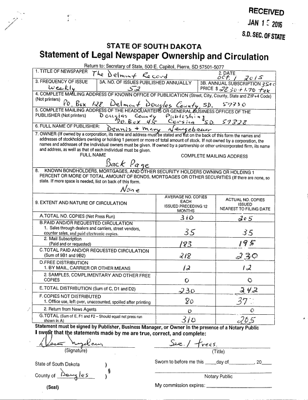 RECEIVED
JAN 15 2016
S.D. SEC. OF STATE
STATE OF SOUTH DAKOTA
Statement of Legal Newspaper Ownership and Circulation
Return to: Secretary of State, 500 E. Capitol, Pierre, SD 57501-5077
1. TITLE OF NEWSPAPER The Delmont Record
2. DATE 2015
3. FREQUENCY OF ISSUE Weekly
3A. NO. OF ISSUES PUBLISHED ANNUALLY 52
3B. ANNUAL SUBSCRIPTION PRICE
4. COMPLETE MAILING ADDRESS OF KNOWN OFFICE OF PUBLICATION (Street, City, County, State and ZIP+4 Code) (Not printers)
P.O. Box 128 Delmont Douglas County, SD. 57330
5. COMPLETE MAILING ADDRESS OF THE HEADQUARTERS OR GENERAL BUSINESS OFFICES OF THE PUBLISHER (Not printers)
Douglas County Publishing
Corsica SD. 57328
6. FULL NAME OF PUBLISHER:
7. OWNER (If owned by a corporation, its name and address must be stated and
addresses of stockholders owning or holding 1 percent or more of total amount of stock. If not owned by a corporation, the
names and addresses of the individual owners must be given. If owned by a partnership or other unincorporated firm, its name
and address, as well as that of each individual must be given.)
FULL NAME COMPLETE MAILING ADDRESS
Back Page
8. KNOWN BONDHOLDERS, MORTGAGEES, AND OTHER SECURITY HOLDERS OWNING OR HOLDING 1
PERCENT OR MORE OF TOTAL AMOUNT OF BONDS, MORTGAGES OR OTHER SECURITIES (If there are none, so
state. If more space is needed, list on back of this form.
None
AVERAGE NO. COPIES EACH ISSUES PRECEDING 12 MONTHS
ACTUAL NO. COPIES ISSUED NEAREST TO FILING DATE
EXTENT AND NATURE OF CIRCULATION
A. TOTAL NO. COPIES (Net Press Run) 310
B. PAID AND/OR REQUESTED CIRCULATION
1. Sales through dealers and carriers, street vendors,
counter sales, and paid electronic copies. 35 35
2. Mail Subscription
(Paid and or requested) 183 195
C. TOTAL PAID AND/OR REQUESTED CIRCULATION
(Sum of 9B1 and 9B2) 218 230
D. FREE DISTRIBUTION
1. BY MAIL, CARRIER OR OTHER MEANS 12 12
2. SAMPLES, COMPLIMENTARY AND OTHER FREE
COPIES 0 0
E. TOTAL DISTRIBUTION (Sum of C, D1 and D2) 230 242
F. COPIES NOT DISTRIBUTED
1. Office use, left over, unaccounted, spoiled after printing 80 37
2. Return from News Agents 0 0
G. TOTAL (Sum of E, F1 and F2 - Should equal net press run shown in A) 310
Statement must be signed by Publisher, Business Manager, or Owner in the presence of a Notary Public
I swear that the statements made by me are true, correct, and complete:
(Signature) (Title)
State of South Dakota )
County of Douglas ) §
(Seal)
Sworn to before me this day of , 20
Notary Public
My commission expires: